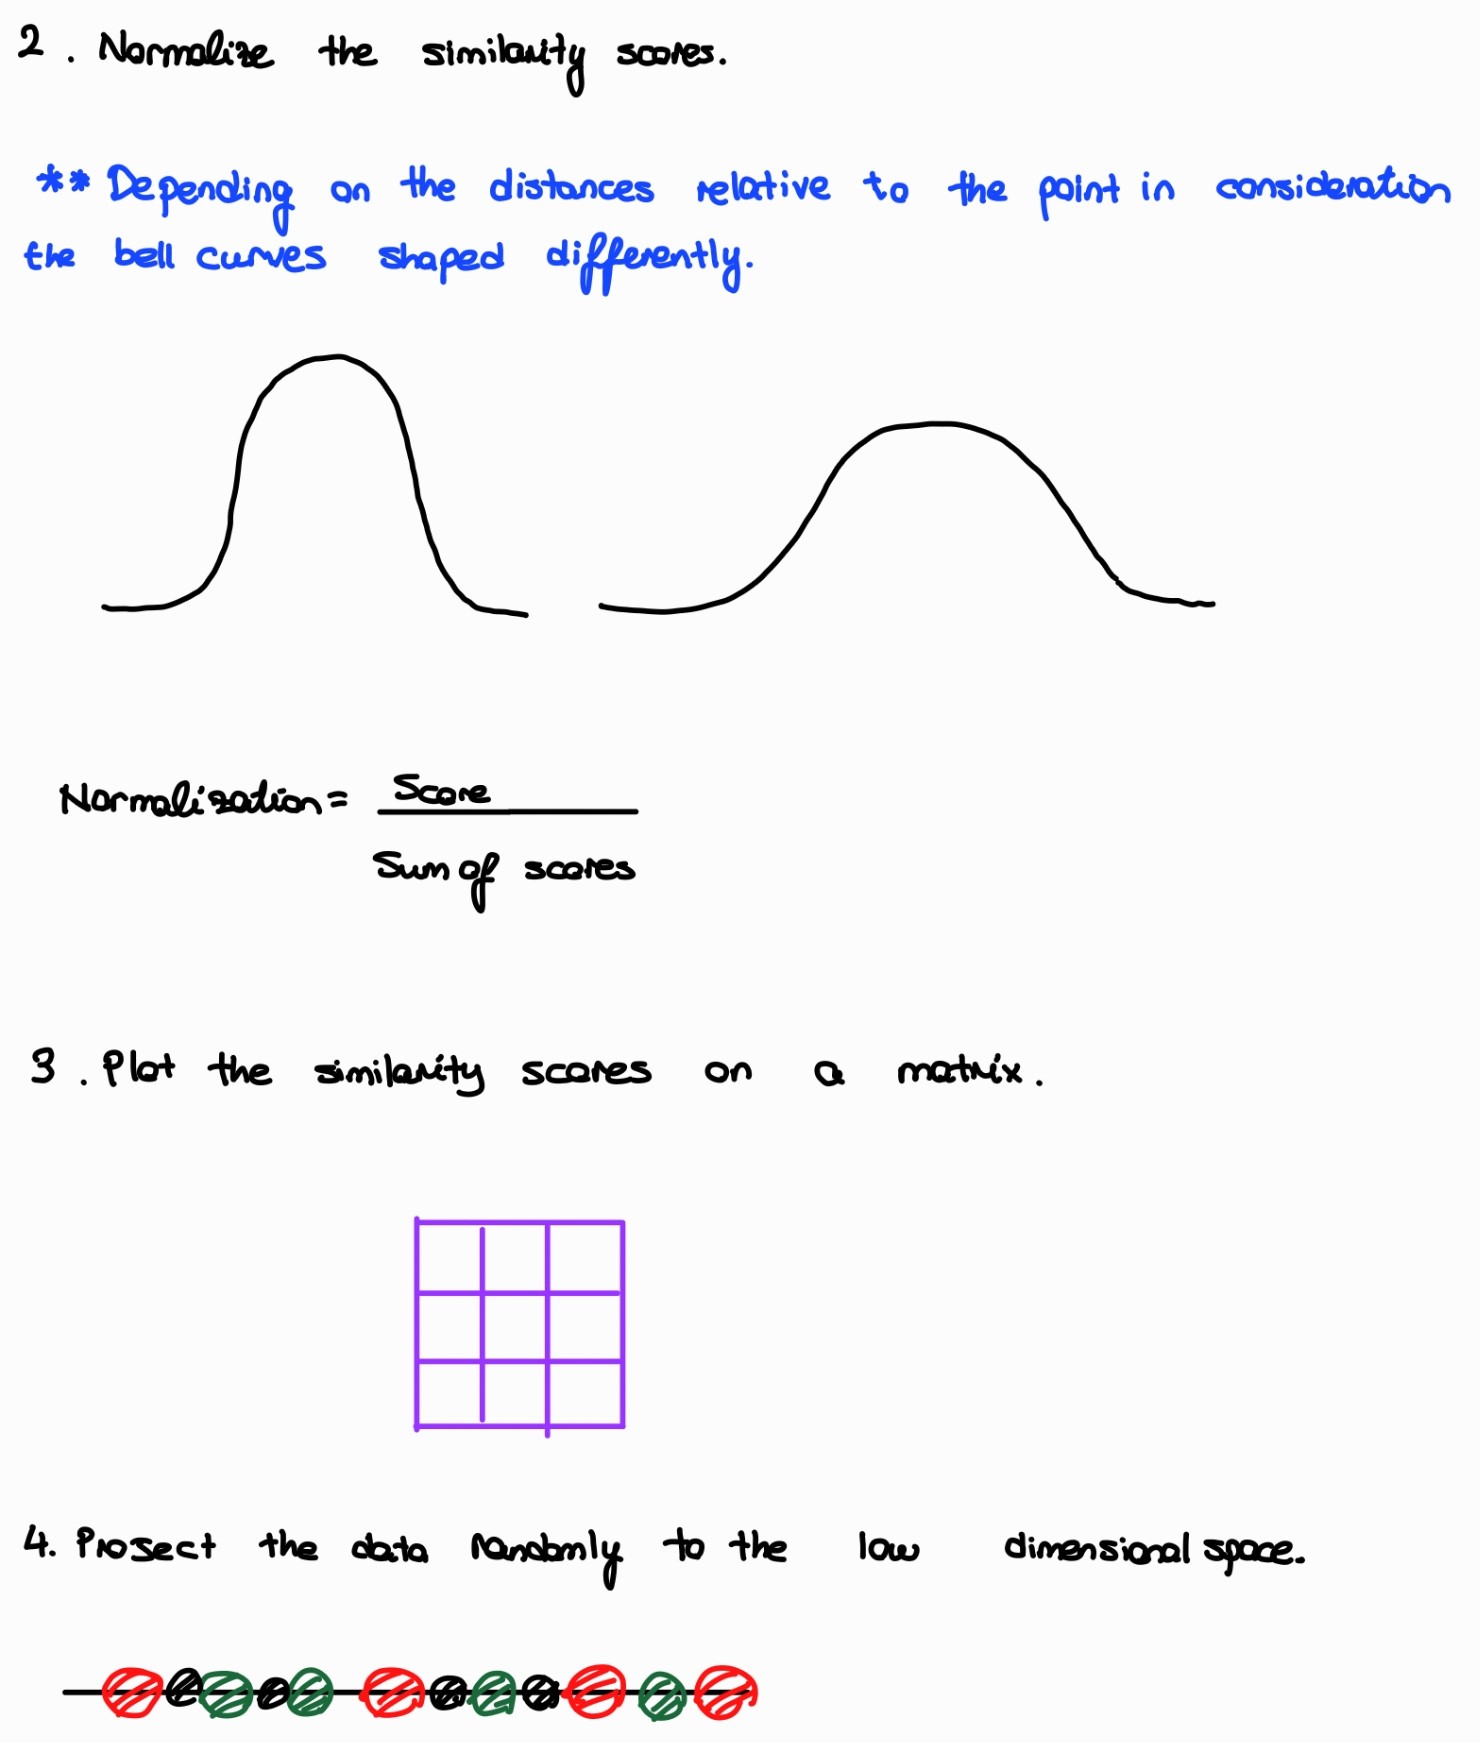 2. Normalize the similarity scores.
** Depending on the distances relative to the point in consideration
the bell curves shaped differently.
Normalization = Score
Sum of scores
3. Plot the similarity scores on a matrix.
4. Prosect the data randomly to the low dimensional space.